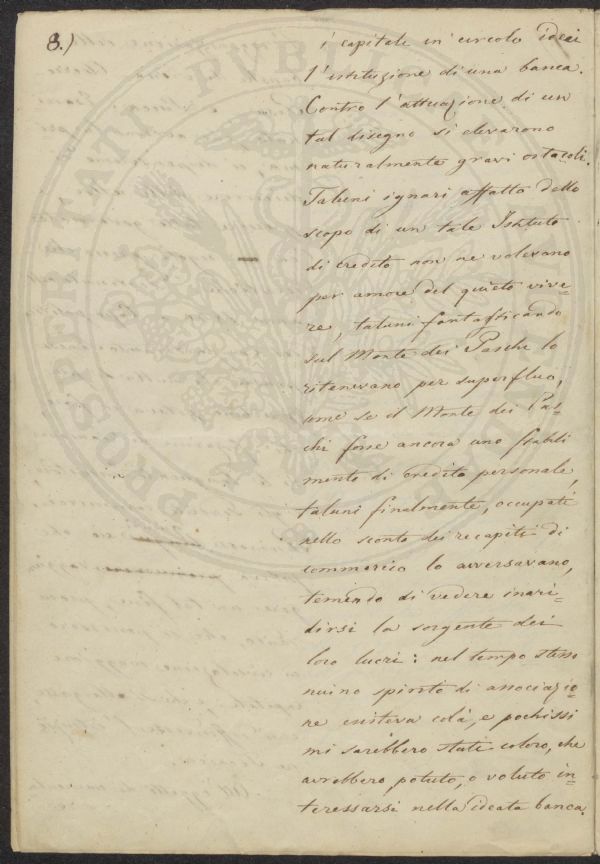 8.)
i capitali in circolo ideai
l'istituzione di una banca.
Contro l'attuazione di un
tal disegno si elevarono
naturalmente gravi ostacoli.
Taluni ignari affatto dello
scopo di un tale Istituto
di credito non ne volevano
per amore del quieto vive=
re, taluni fantasticando
sul Monte dei Paschi lo
ritenevano per superfluo,
come se il Monte dei Pas=
chi fosse ancora uno stabili
mento di credito personale,
taluni finalmente, occupati
nello sconto dei recapiti di
commercio lo avversavano,
temendo di vedere inari=
dirsi la sorgente dei
loro lucri: nel tempo stesso
niuno spirito di associazio=
ne esisteva colà, e pochissi
mi sarebbero stati coloro, che
avrebbero potuto, o voluto in=
teressarsi nella ideata banca.
PROSPERITATI PUBLICAE